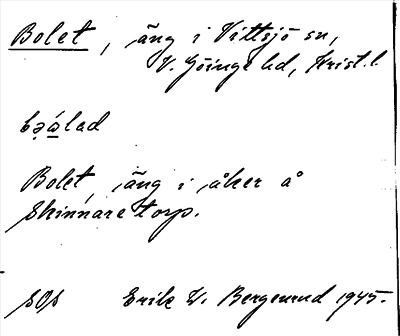 Bolet, äng i Vittsjö sn,
V. Göinge hd, Krist. l.
Bolet, äng i åker å
Skinnaretorp.
SOS Erik W. Bergenrud 1945.